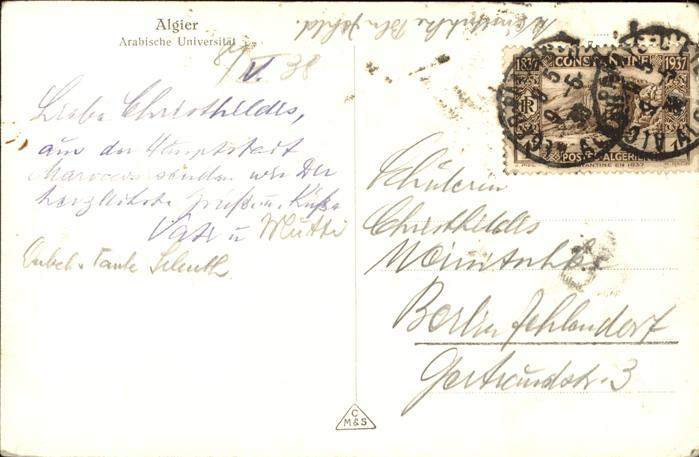 Algier
Arabische Universität
8/V. 38
Liebe Christhildis,
aus der Hauptstadt
Maroccos senden wir Dir
herzlichste Grüße u. Küße
Vati u Mutti
Tante
1837 1937
CONSTANTINE
RF
POSTES ALGERIE
CONSTANTINE EN 1837
ALGER
Schülerin
Christhildis
Berlin Zehlendorf
Gertraudstr. 3
C
M&S